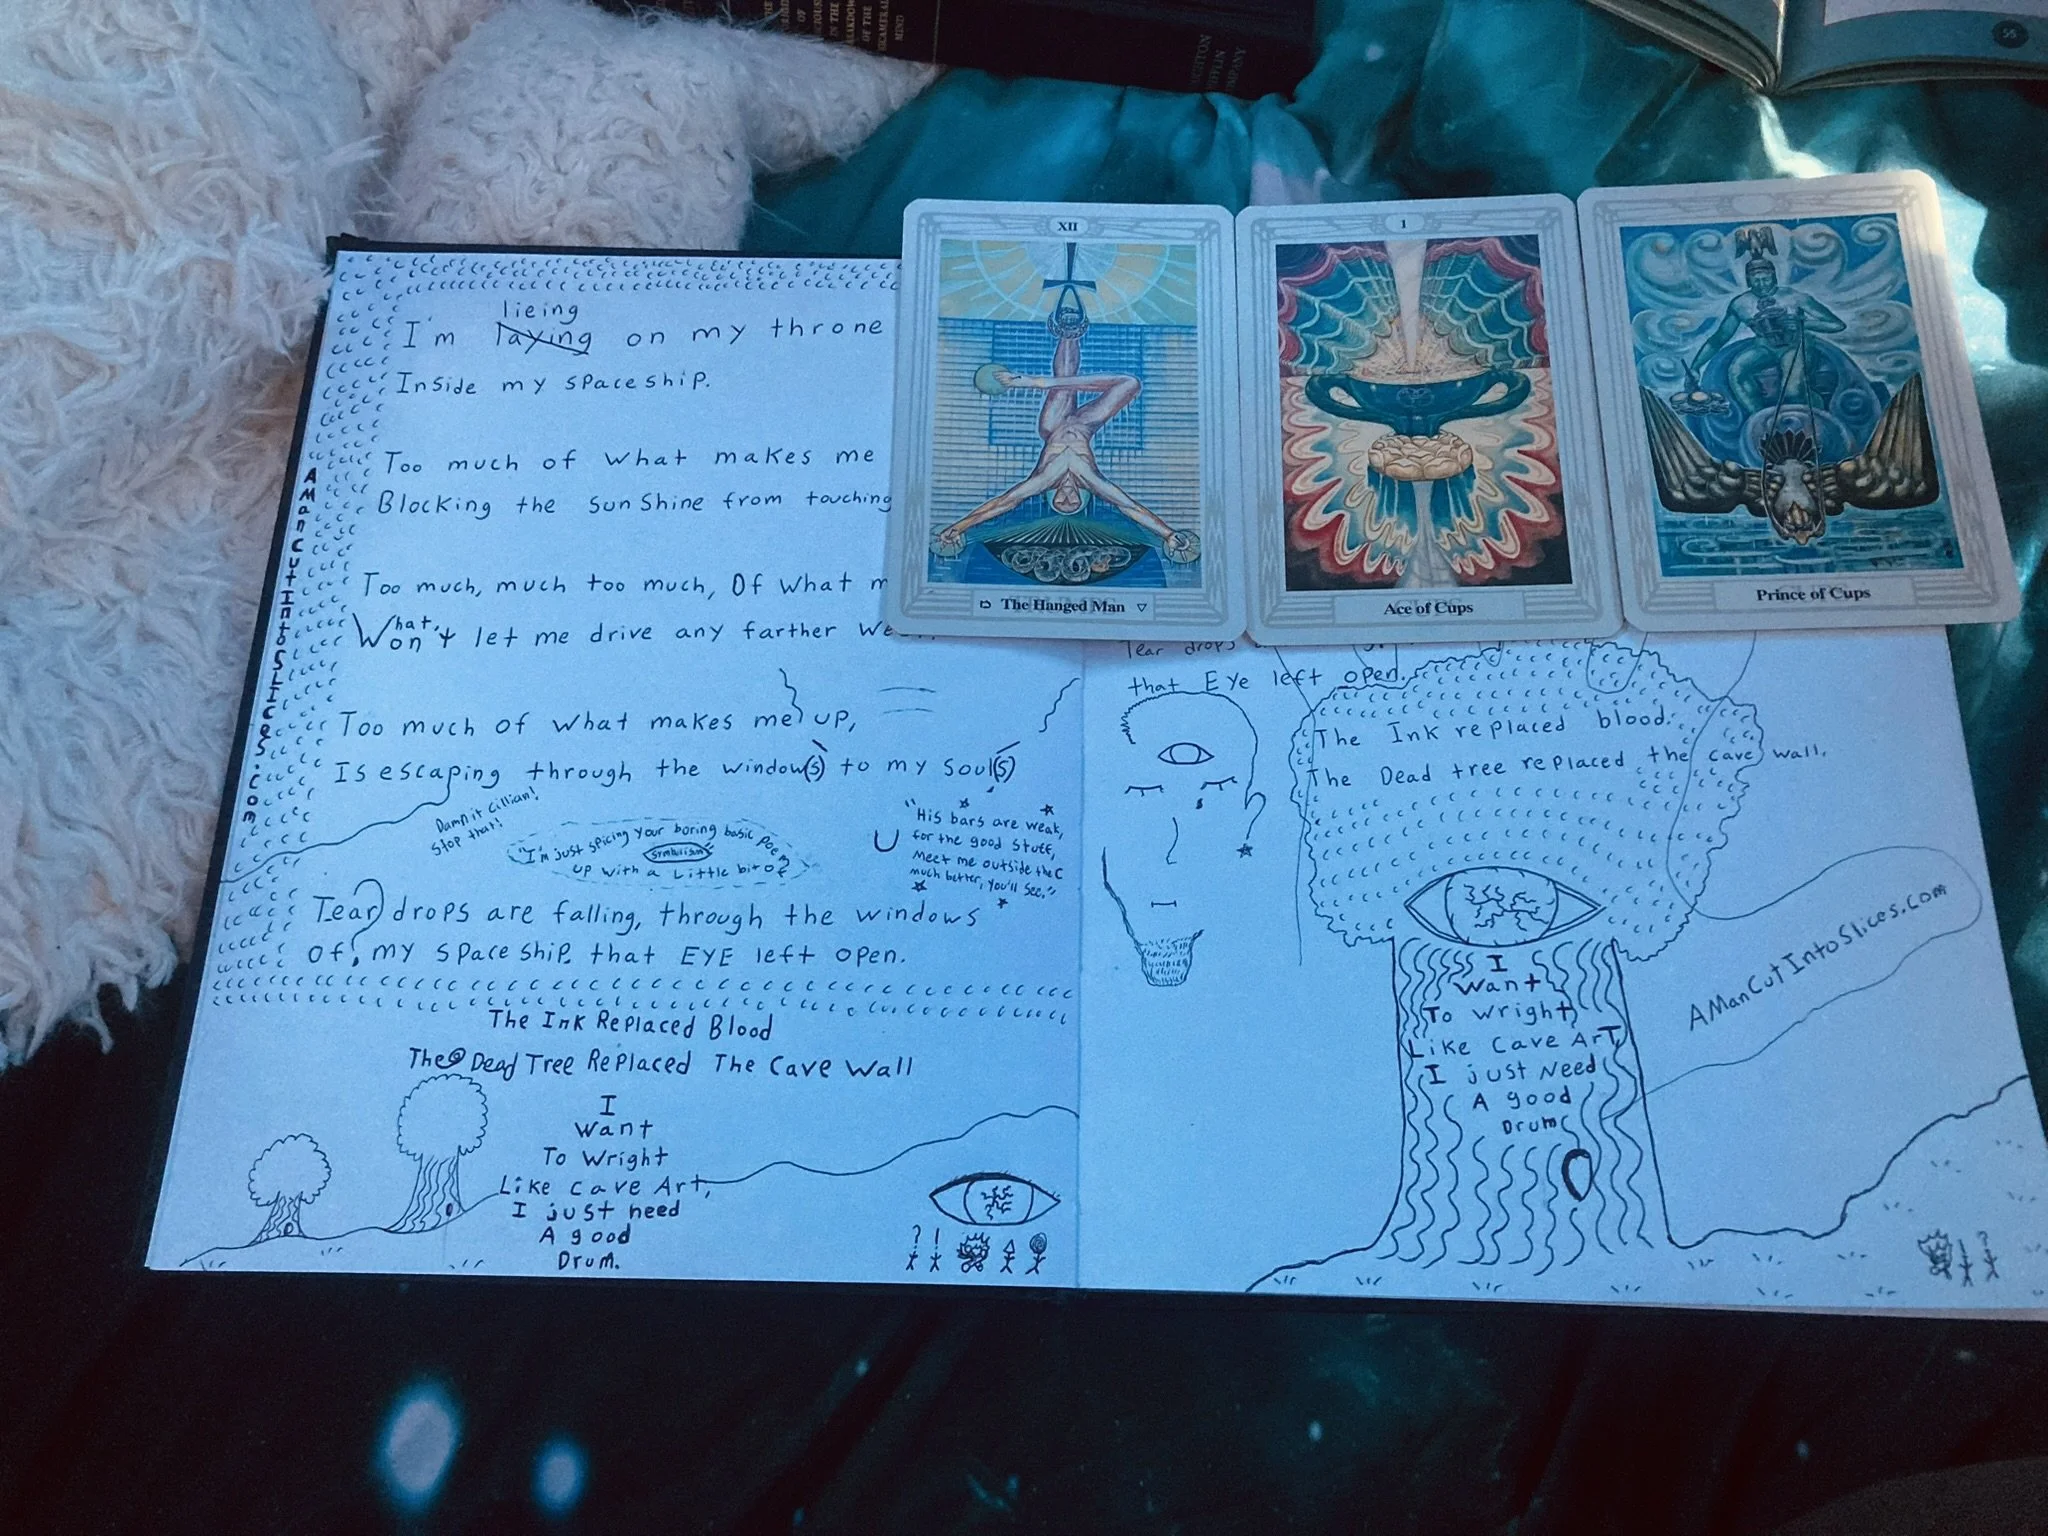 OF
IN THE
OF THE
MIND
COMPANY
55
XII
The Hanged Man
1
Ace of Cups
Prince of Cups
AManCutIntoSlices.com
lieing
I'm laying on my throne
Inside my spaceship.
Too much of what makes me
Blocking the sunshine from touching
Too much, much too much, Of what
hat,
Won't let me drive any farther
Too much of what makes me up,
Is escaping through the window(s) to my soul(s)
Damn it Cillian!
Stop that!
"I'm just spicing your boring basic poem
up with a little bit of
symbolism"
"His bars are weak,
for the good stuff,
Meet me outside the C
much better, you'll see."
Tear drops are falling, through the windows
Of, my spaceship. that EYE left open.
The Ink Replaced Blood
The Dead Tree Replaced The Cave Wall
I
Want
To Wright
Like Cave Art,
I just need
A good
Drum.
? !
Tear drops
that Eye left open.
The Ink replaced blood.
The Dead tree replaced the cave wall.
I
Want
To Wright
Like Cave Art,
I just Need
A good
Drum
AManCutIntoSlices.com